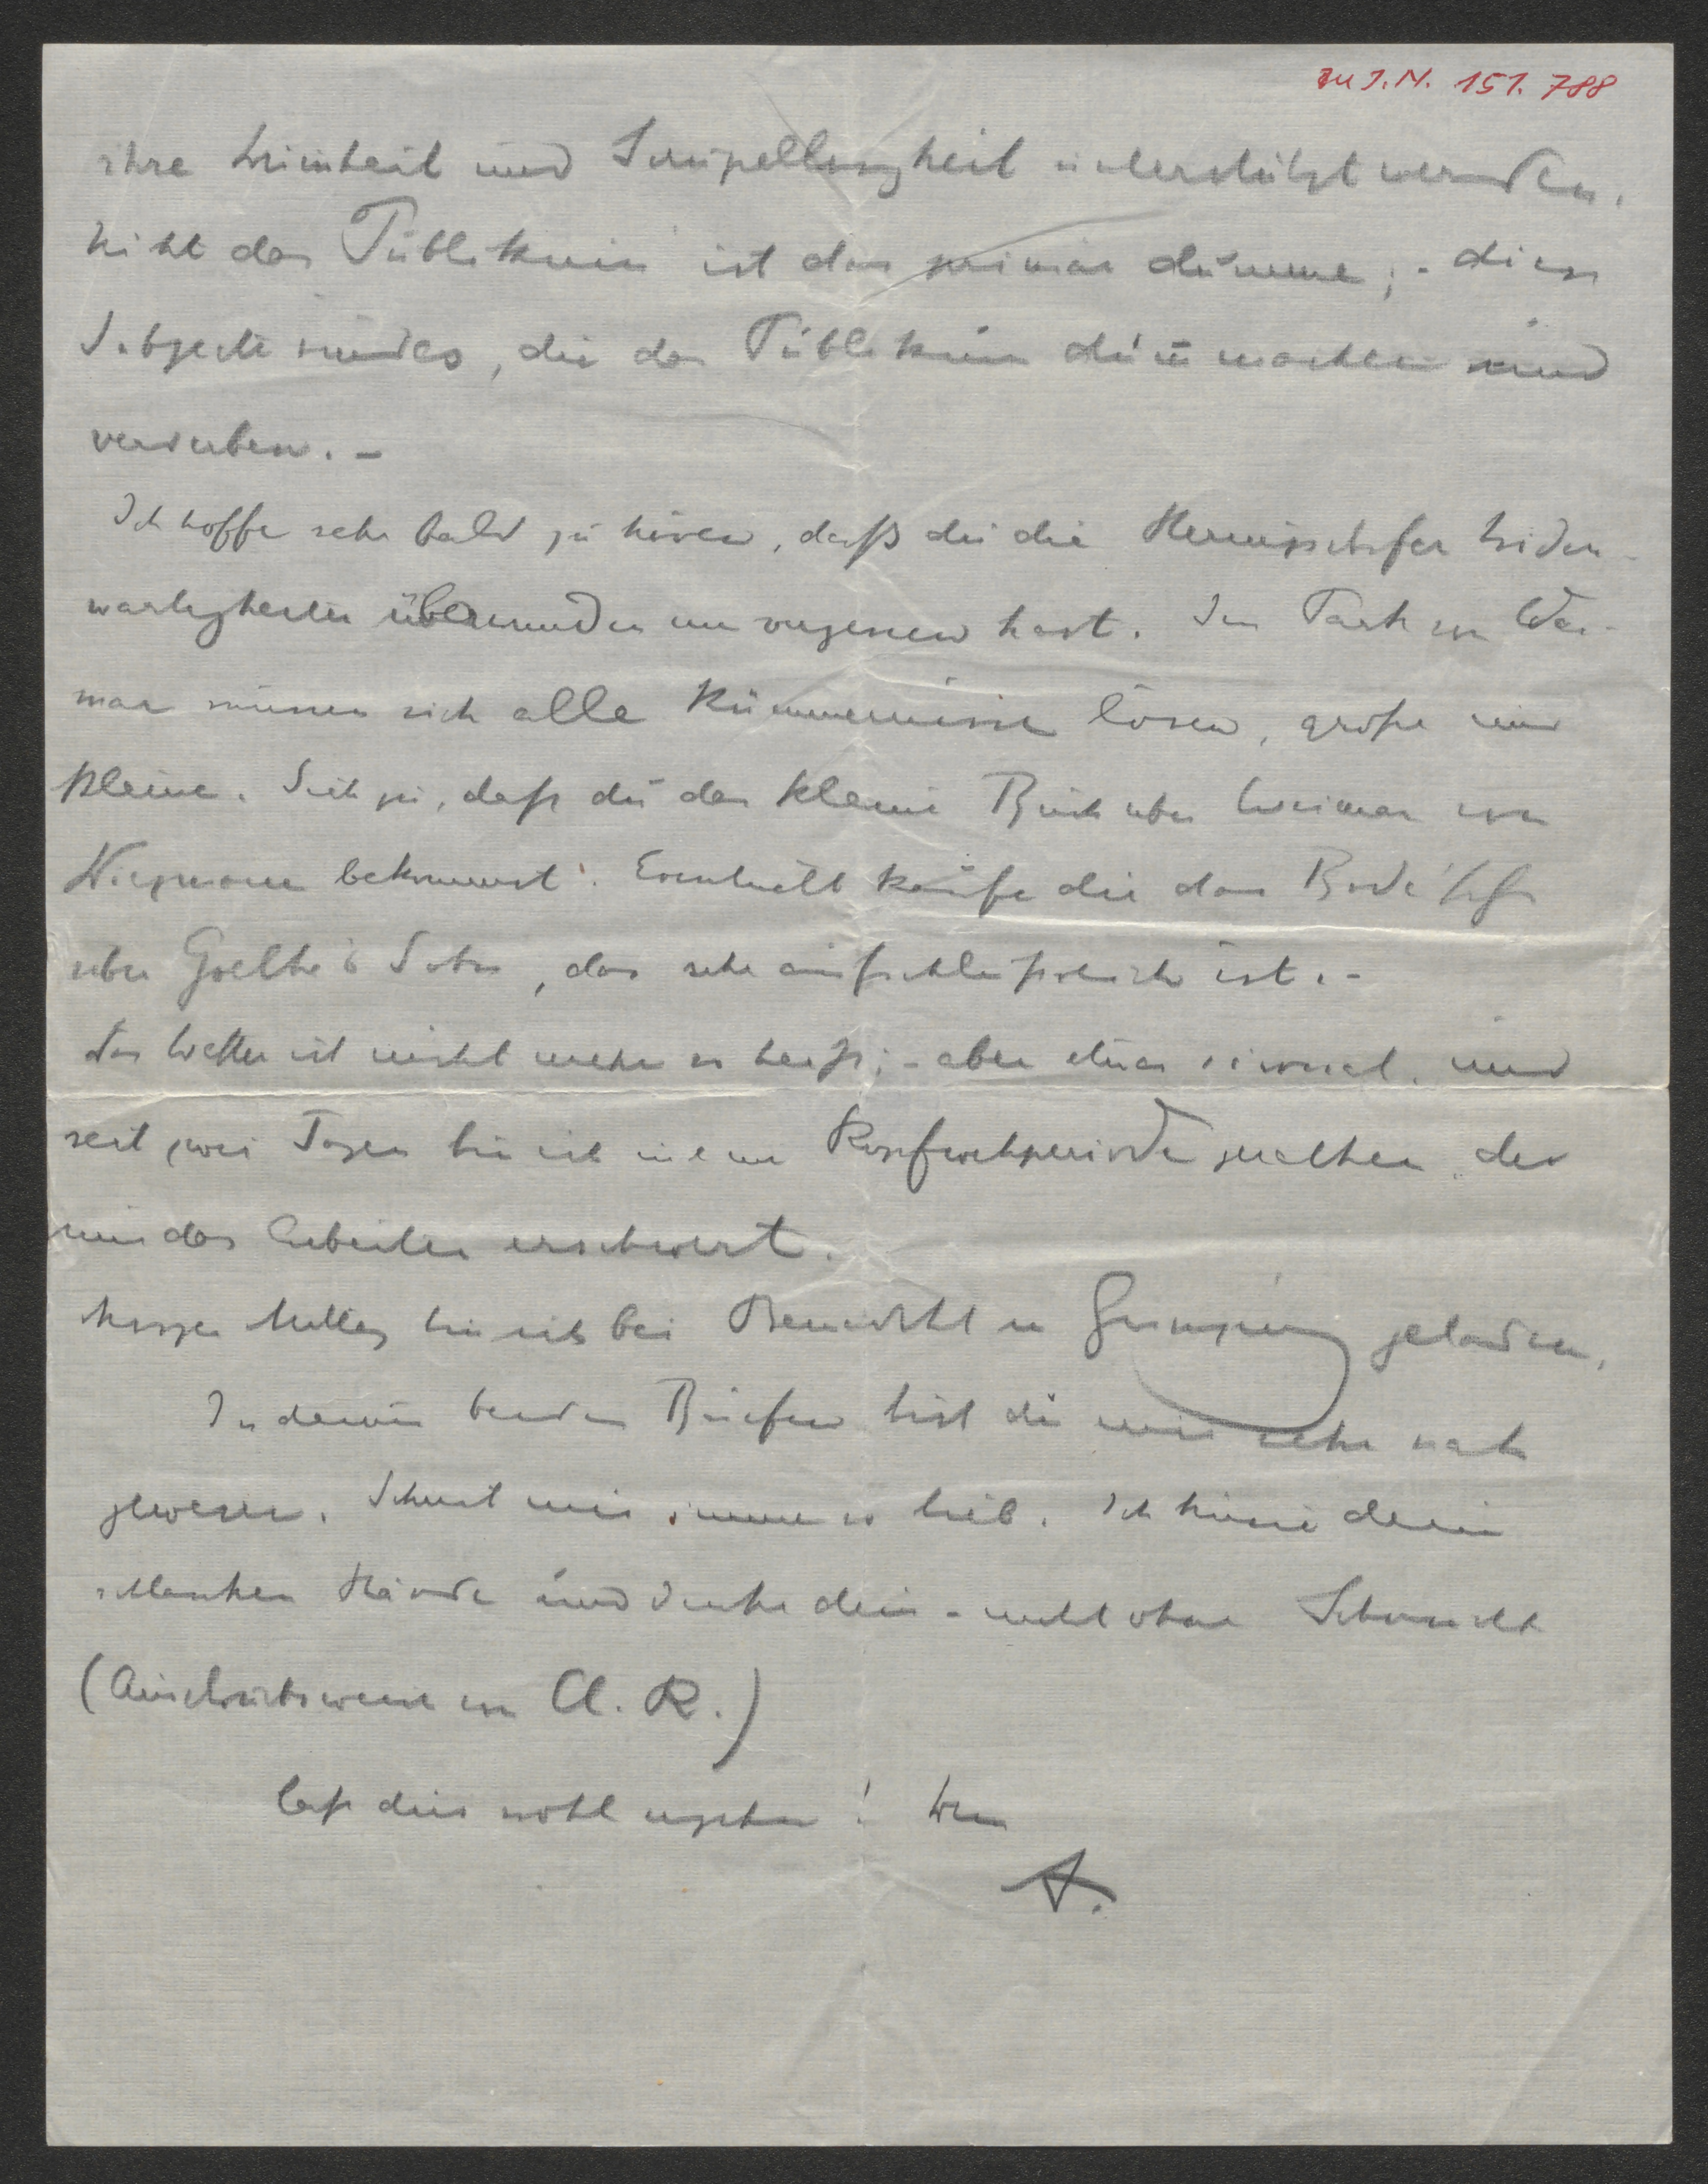 Zu I.N. 151.788
ihre Dummheit und Skrupellosigkeit unterstützt werden.
Nicht das Publikum ist das primär dumme; - diese
Subjecte sind es, die das Publikum dumm machen und
verderben. -
Ich hoffe sehr bald zu hören, daß du die Wider-
wärtigkeiten überwunden und vergessen hast. Im Park von Wei-
mar müssen sich alle Kümmernisse lösen, große und
kleine. Sieh zu, daß du das kleine Buch über Weimar von
bekommst. Eventuell kaufe dir das Bode'sche
über Goethes Sohn, das sehr aufschlußreich ist. -
Das Wetter ist nicht mehr so heiß; - aber etwas und
seit zwei Tagen bin ich in eine Kopfwehperiode geraten, die
mir das Arbeiten erschwert.
Morgen Mittag bin ich bei Benedikt in Grinzing geladen.
In deinen beiden Briefen bist du mir sehr nah
gewesen. Schreib mir immer so lieb. Ich küsse deine
schlanken Hände und denke dein - nicht ohne Sehnsucht
(Ausdrucksweise von A. R.)
Laß dirs wohl ergehen!
A.